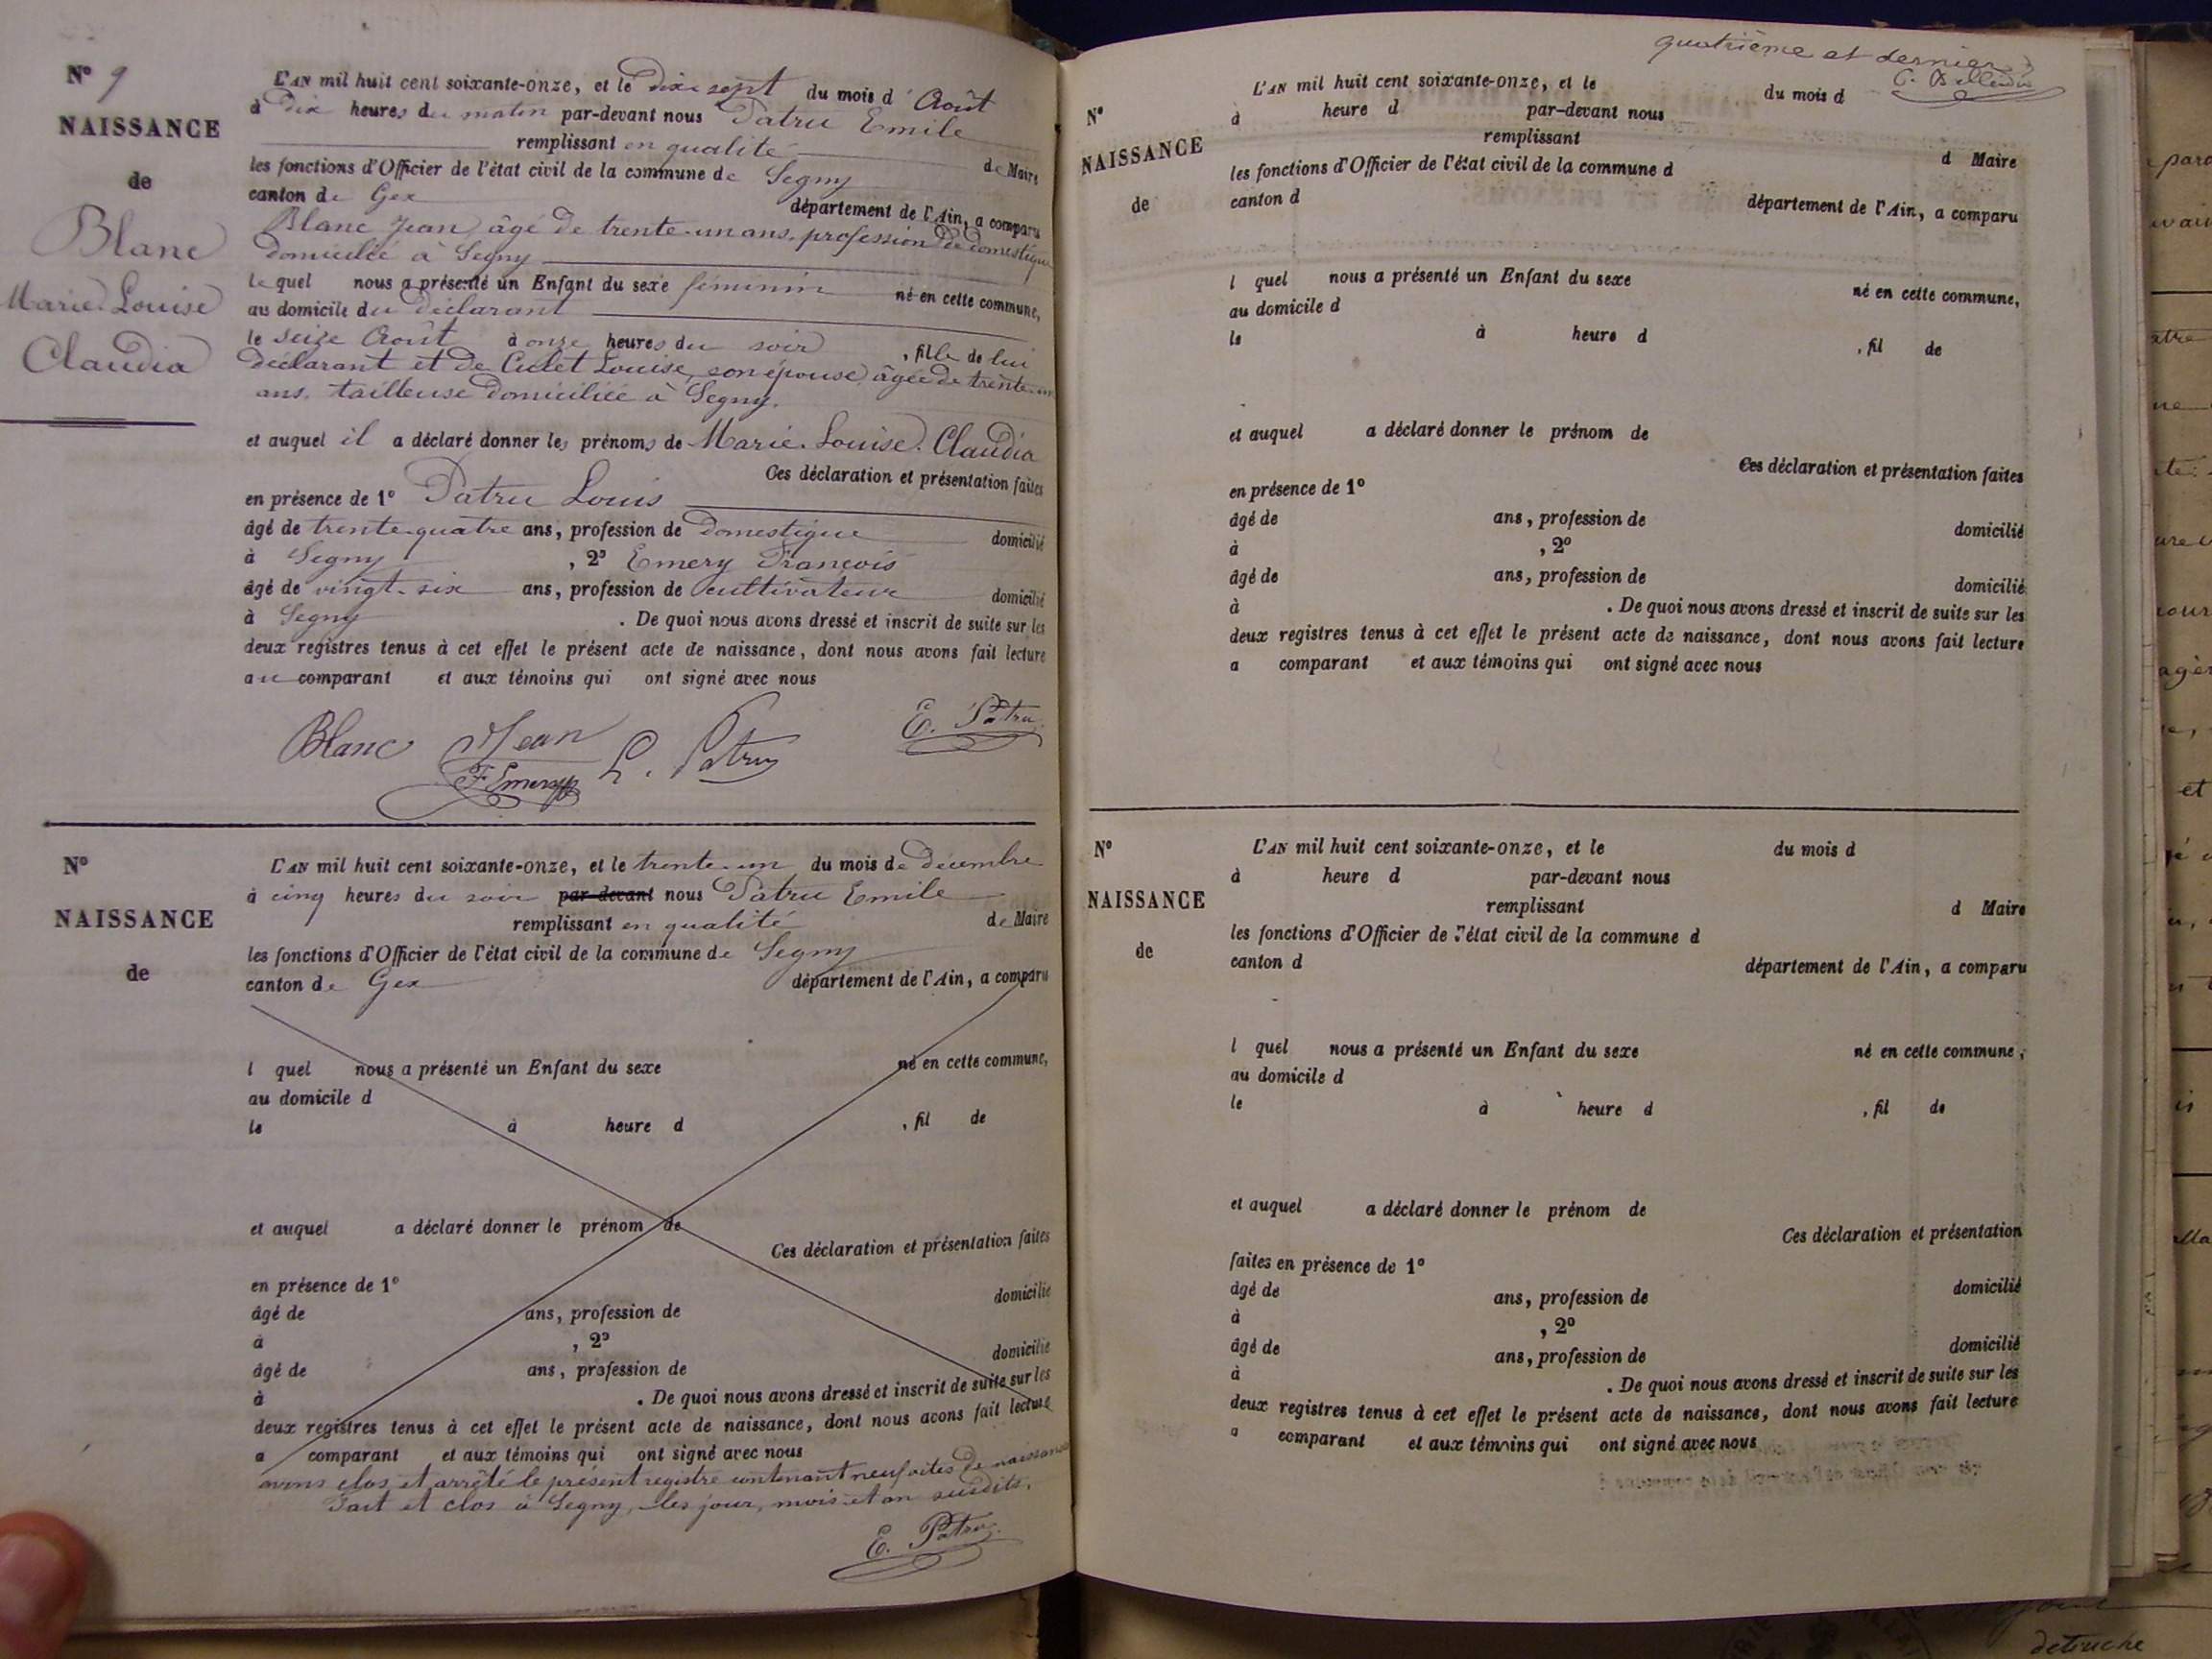 N° 9
NAISSANCE
de
Blanc
Marie Louise
Claudia
L'AN mil huit cent soixante-onze, et le dix sept du mois d'Août
à dix heures du matin par-devant nous Patru Emile
remplissant en qualité de Maire
les fonctions d'Officier de l'état civil de la commune de Segny
canton de Gex département de l'Ain, a comparu
Blanc Jean, âgé de trente-un ans, profession de domestique
domicilié à Segny
lequel nous a présenté un Enfant du sexe féminin né en cette commune,
au domicile du déclarant
le seize Août à onze heures du soir, fille de lui
déclarant et de Culet Louise, son épouse, âgée de trente-un
ans, tailleuse domiciliée à Segny.
et auquel il a déclaré donner les prénoms de Marie Louise Claudia
Ces déclaration et présentation faites
en présence de 1° Patru Louis
âgé de trente-quatre ans, profession de domestique domicilié
à Segny, 2° Emery François
âgé de vingt-six ans, profession de cultivateur domicilié
à Segny. De quoi nous avons dressé et inscrit de suite sur les
deux registres tenus à cet effet le présent acte de naissance, dont nous avons fait lecture
au comparant et aux témoins qui ont signé avec nous
Blanc Jean L. Patru E. Patru
F Emery
N°
NAISSANCE
de
L'AN mil huit cent soixante-onze, et le trente-un du mois de décembre
à cinq heures du soir par-devant nous Patru Emile
remplissant en qualité de Maire
les fonctions d'Officier de l'état civil de la commune de Segny
canton de Gex département de l'Ain, a comparu
l quel nous a présenté un Enfant du sexe né en cette commune,
au domicile d
le à heure d , fil de
et auquel a déclaré donner le prénom de
Ces déclaration et présentation faites
en présence de 1°
âgé de ans, profession de domicilié
à , 2°
âgé de ans, profession de domicilié
à . De quoi nous avons dressé et inscrit de suite sur les
deux registres tenus à cet effet le présent acte de naissance, dont nous avons fait lecture
a comparant et aux témoins qui ont signé avec nous
avons clos et arrêté le présent registre contenant neuf actes de naissance
Fait et clos à Segny, les jour, mois et an susdits.
E. Patru
quatrième et dernier
N°
NAISSANCE
de
L'AN mil huit cent soixante-onze, et le du mois d
à heure d par-devant nous
remplissant d Maire
les fonctions d'Officier de l'état civil de la commune d
canton d département de l'Ain, a comparu
l quel nous a présenté un Enfant du sexe né en cette commune,
au domicile d
le à heure d , fil de
et auquel a déclaré donner le prénom de
Ces déclaration et présentation faites
en présence de 1°
âgé de ans, profession de domicilié
à , 2°
âgé de ans, profession de domicilié
à . De quoi nous avons dressé et inscrit de suite sur les
deux registres tenus à cet effet le présent acte de naissance, dont nous avons fait lecture
a comparant et aux témoins qui ont signé avec nous
N°
NAISSANCE
de
L'AN mil huit cent soixante-onze, et le du mois d
à heure d par-devant nous
remplissant d Maire
les fonctions d'Officier de l'état civil de la commune d
canton d département de l'Ain, a comparu
l quel nous a présenté un Enfant du sexe né en cette commune,
au domicile d
le à heure d , fil de
et auquel a déclaré donner le prénom de
Ces déclaration et présentation
faites en présence de 1°
âgé de ans, profession de domicilié
à , 2°
âgé de ans, profession de domicilié
à . De quoi nous avons dressé et inscrit de suite sur les
deux registres tenus à cet effet le présent acte de naissance, dont nous avons fait lecture
a comparant et aux témoins qui ont signé avec nous